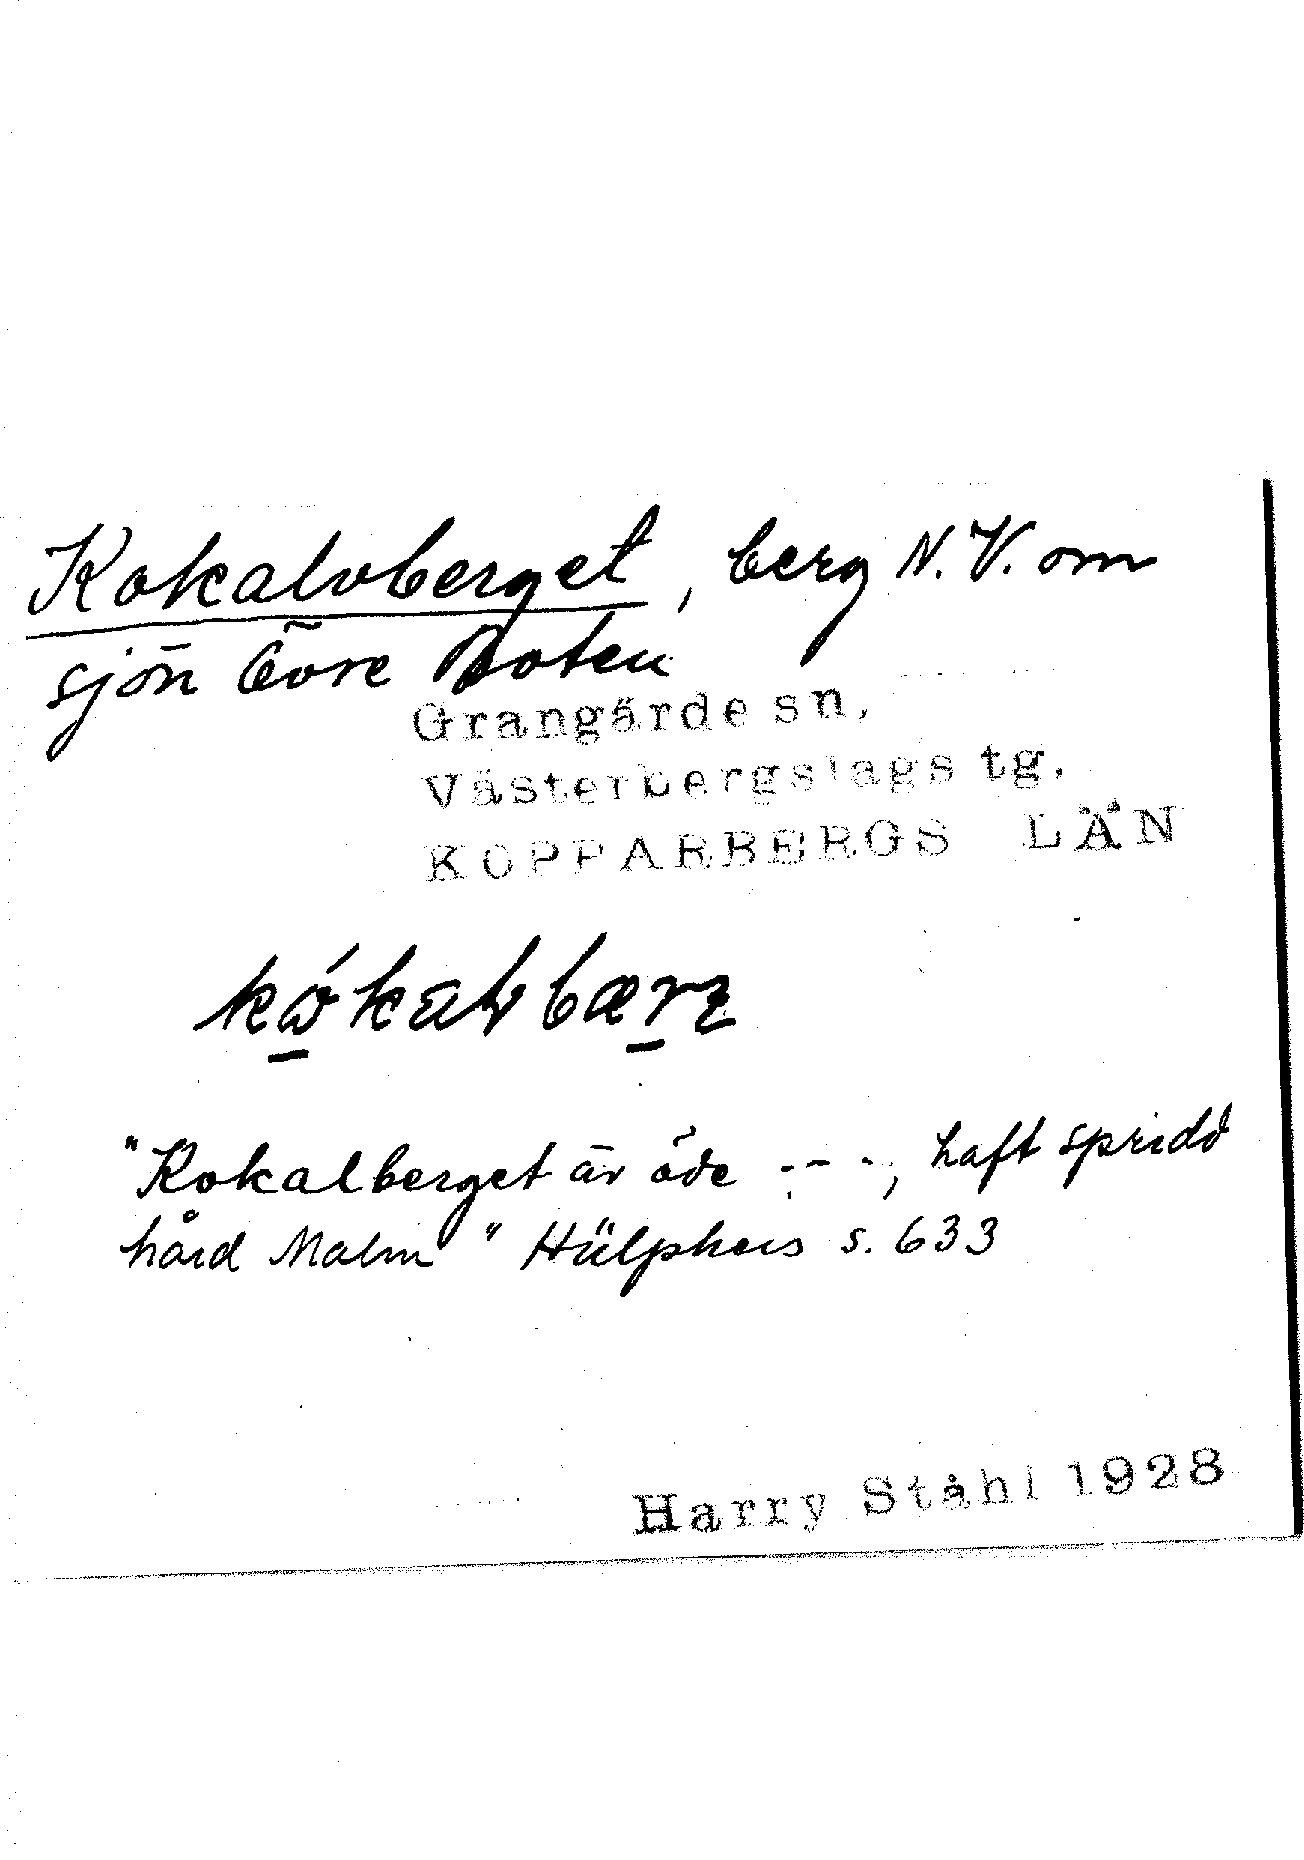 Kokalvberget, berg N.V. om
sjön Övre Noten
Grangärde sn.
Västerbergslags tg.
KOPPARBERGS LÄN
"Kokalberget är öde - - -, haft spridd
hård Malm" Hülphers s. 633
Harry Ståhl 1928